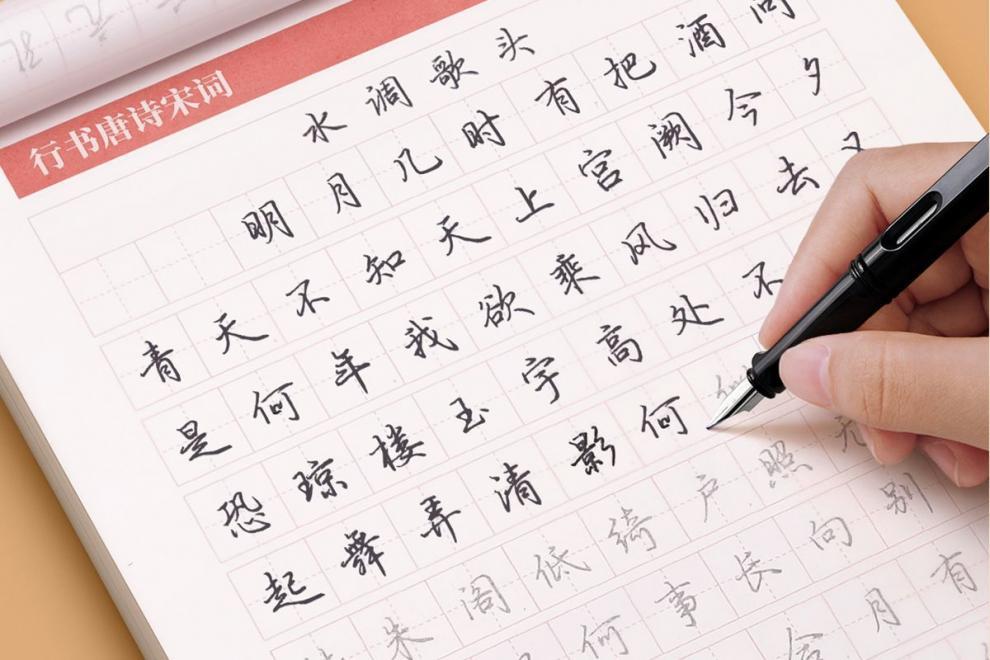 行书唐诗宋词
水调歌头
明月几时有把酒问
青天不知天上宫阙今夕
是何年我欲乘风归去又
恐琼楼玉宇高处不
起舞弄清影何
朱阁低绮户照无
何事长向别
合月有